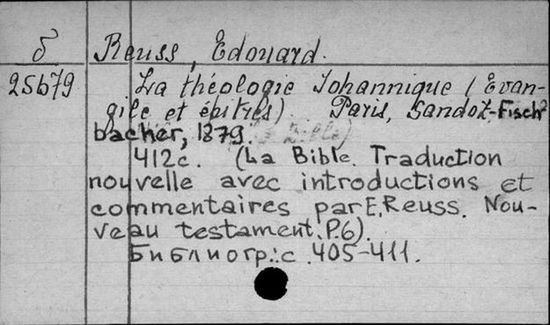 б Reuss, Edouard.
25679 La théologie Johannique (Evan-
gile et épitres). Paris, Sandoz-Fisch-
bacher, 1879.
412c. (La Bible. Traduction
nouvelle avec introductions et
commentaires par E. Reuss. Nou-
veau testament. P.6).
Библиогр.: с. 405-411.